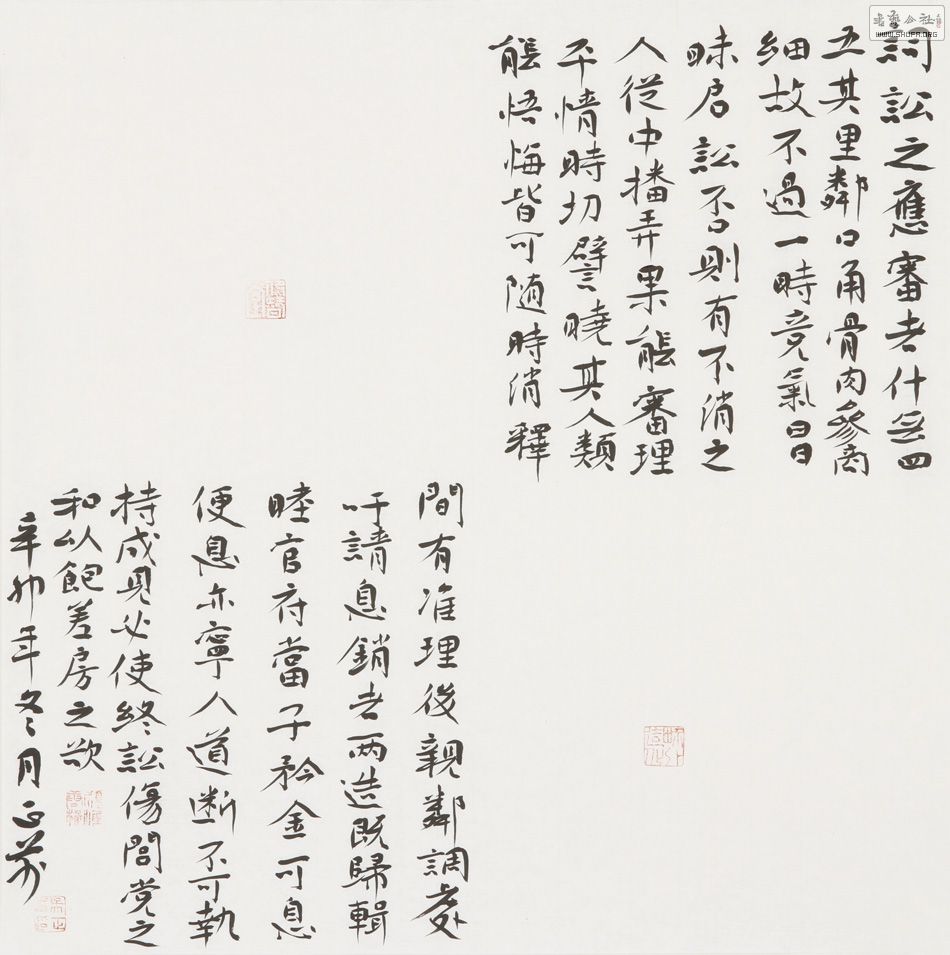 詞訟之應審者什無四
五其里鄰口角骨肉參商
細故不過一時竞氣冒
昧启訟否則有不消之
人從中播弄果能審理
平情時切譬曉其人類
能悟悔皆可随時消釋
間有准理後親鄰調處
吁請息銷者两造既歸輯
睦官府當予矜全可息
便息亦寧人道断不可執
持成見必使終訟傷閭党之
和以飽差房之欲
辛卯年冬月正
WWW.SHUFA.ORG